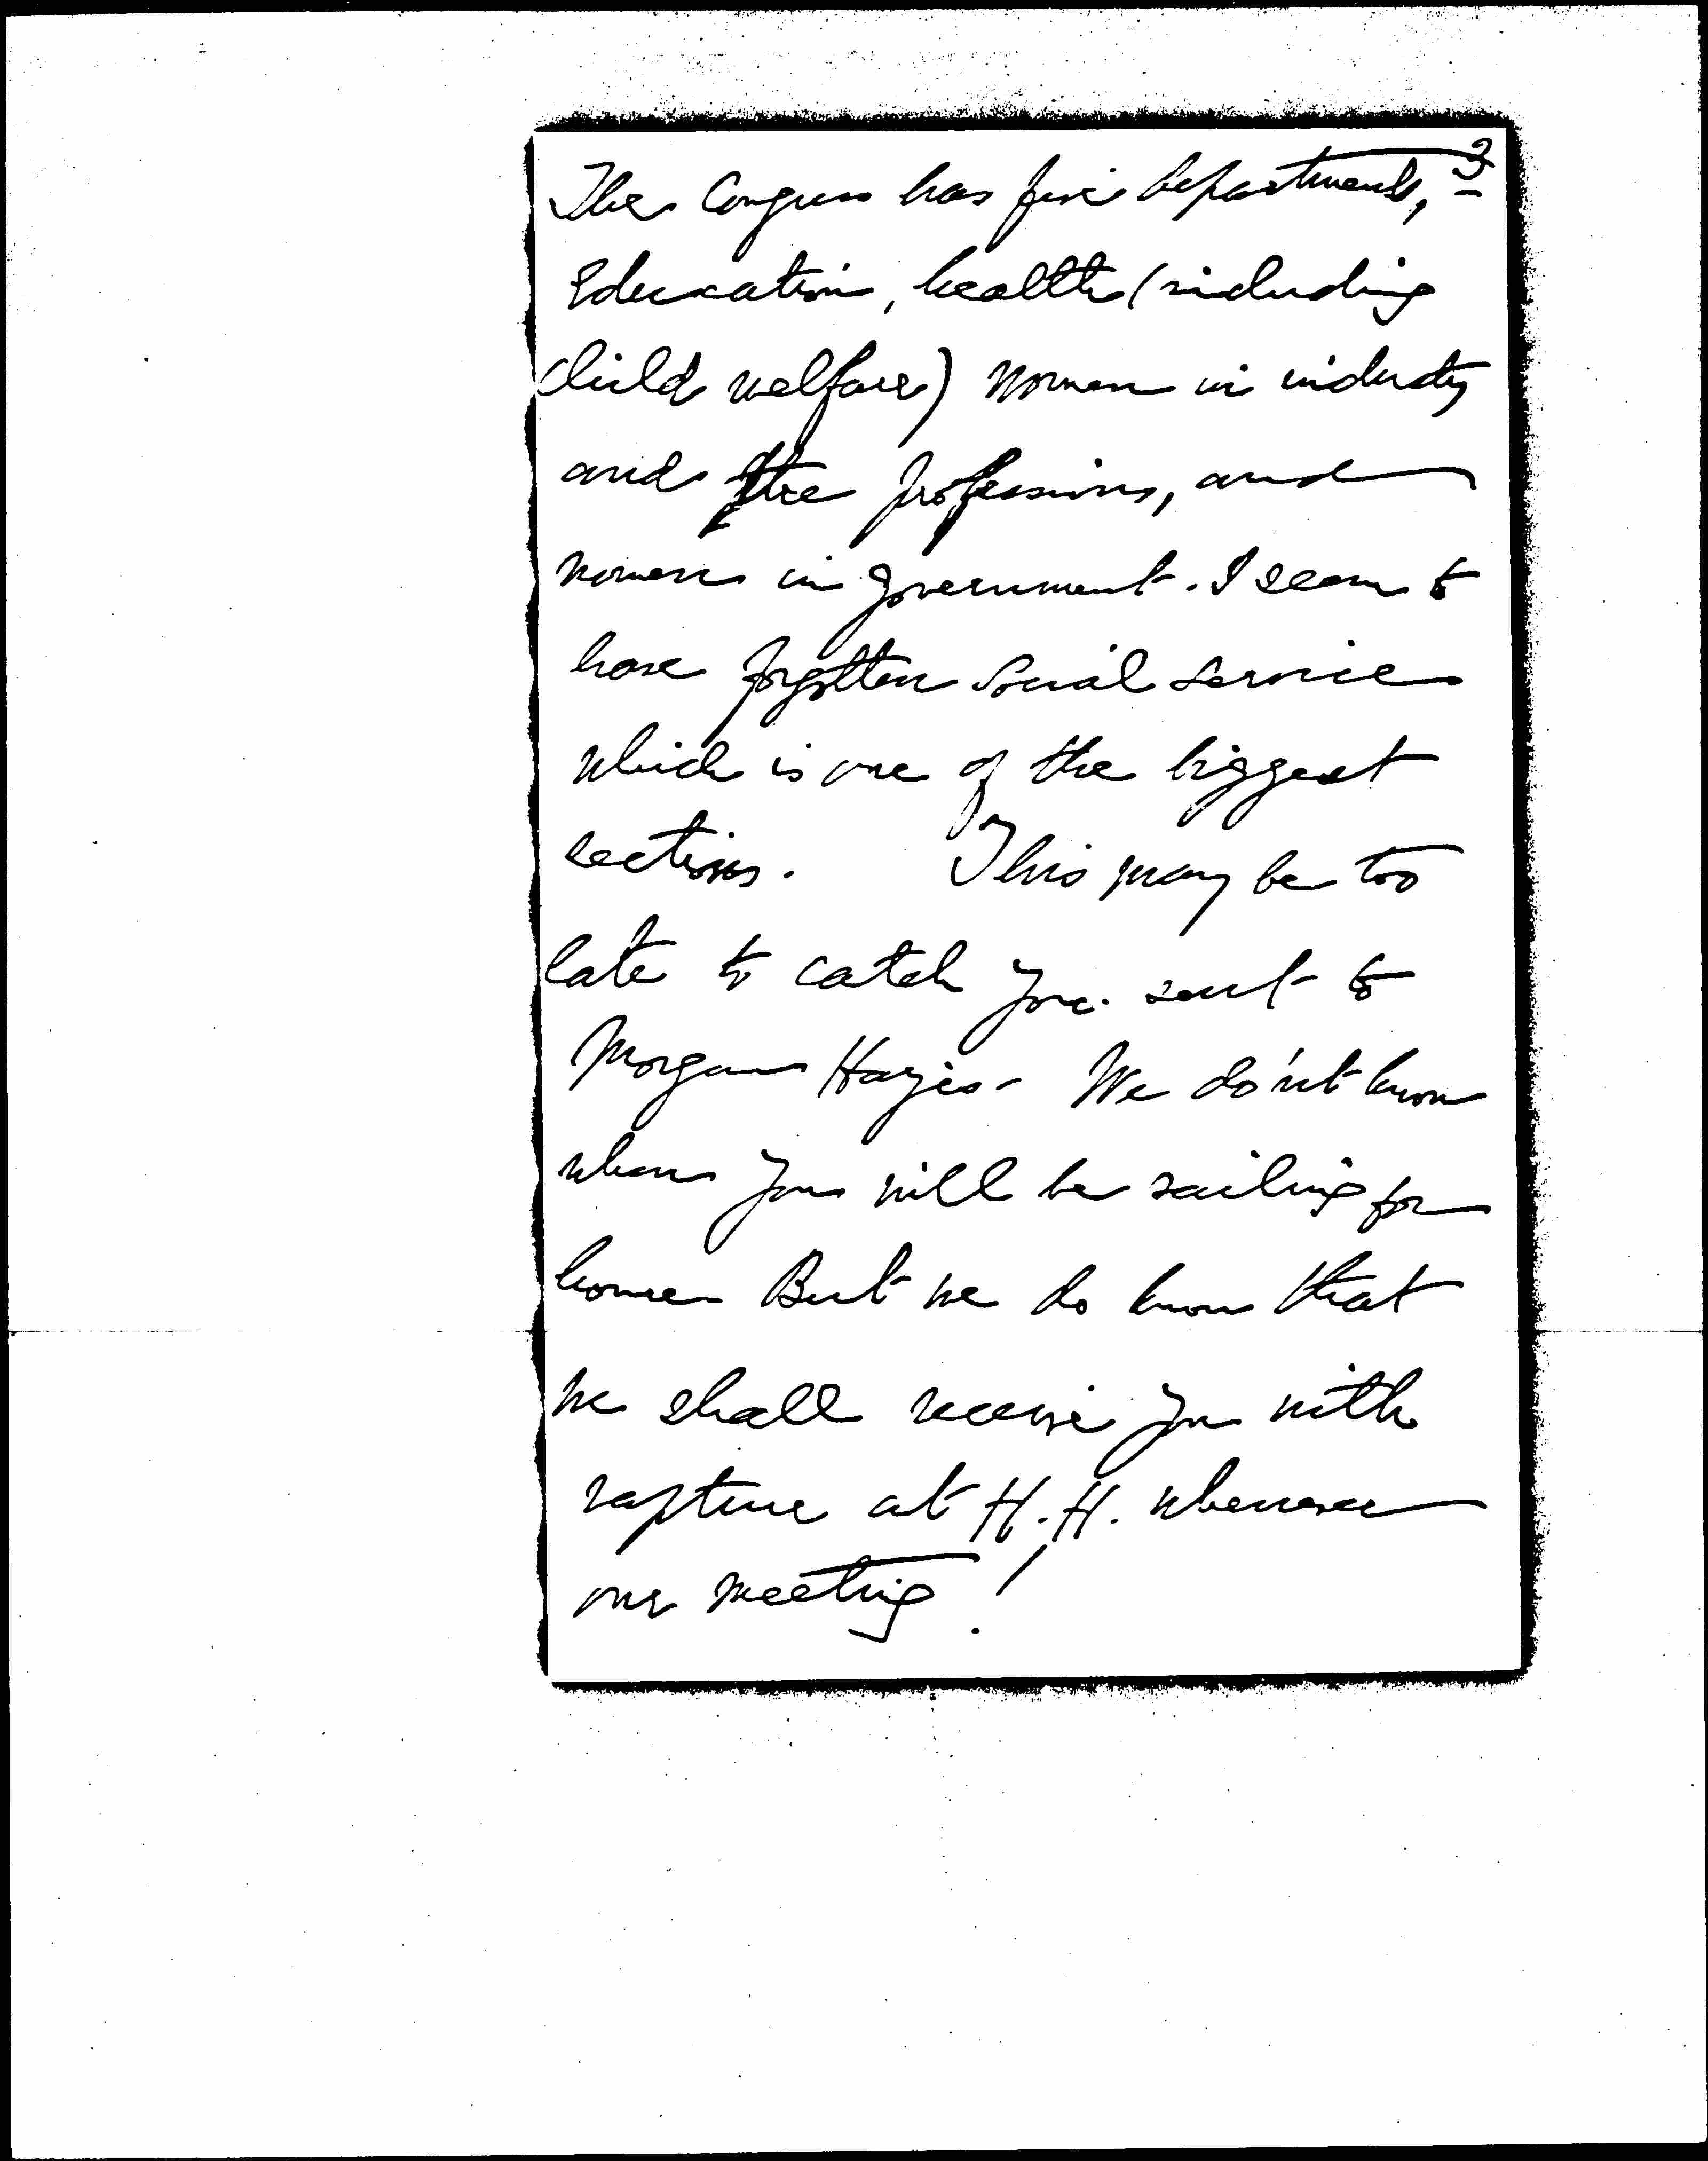 3
The Congress has five departments,
Education, health (including
child welfare) women in industry
and the professions, and
women in government. I seem to
have forgotten social service
which is one of the biggest
sections. This may be too
late to catch you sent to
Morgan We do'nt know
when you will be sailing for
home. But we do know that
we shall receive you with
rapture at H.H. whenever
our meeting!